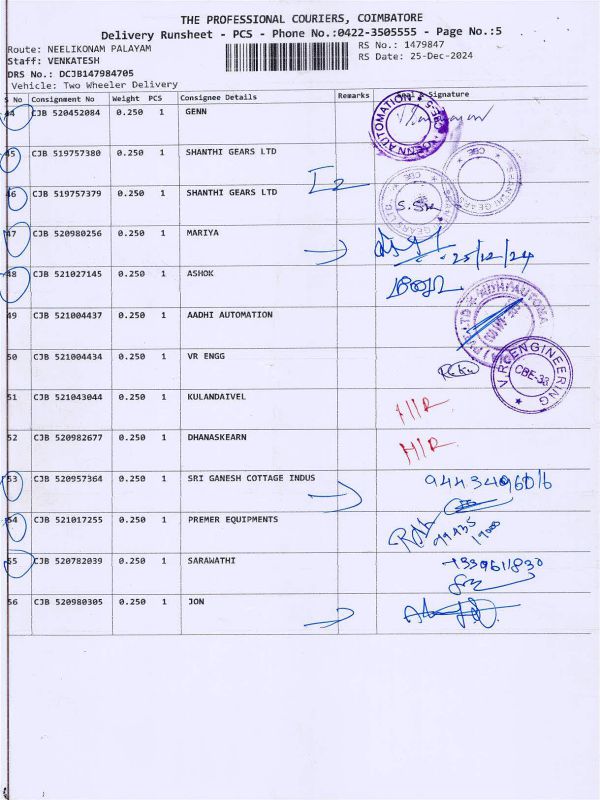 THE PROFESSIONAL COURIERS, COIMBATORE
Delivery Runsheet - PCS - Phone No.:0422-3505555 - Page No.:5
Route: NEELIKONAM PALAYAM
RS No.: 1479847
Staff: VENKATESH
RS Date: 25-Dec-2024
DRS No.: DCJB147984705
Vehicle: Two Wheeler Delivery
No Consignment No Weight PCS Consignee Details Remarks Signature
44 CJB 520452084 0.250 1 GENN
45 CJB 519757380 0.250 1 SHANTHI GEARS LTD
46 CJB 519757379 0.250 1 SHANTHI GEARS LTD
47 CJB 520980256 0.250 1 MARIYA 25/12/24
48 CJB 521027145 0.250 1 ASHOK
49 CJB 521004437 0.250 1 AADHI AUTOMATION
50 CJB 521004434 0.250 1 VR ENGG
V.R. ENGINEERING
CBE-38
51 CJB 521043044 0.250 1 KULANDAIVEL H/R
52 CJB 520982677 0.250 1 DHANASKEARN H/R
53 CJB 520957364 0.250 1 SRI GANESH COTTAGE INDUS
54 CJB 521017255 0.250 1 PREMER EQUIPMENTS
55 CJB 520782039 0.250 1 SARAWATHI
56 CJB 520980305 0.250 1 JON